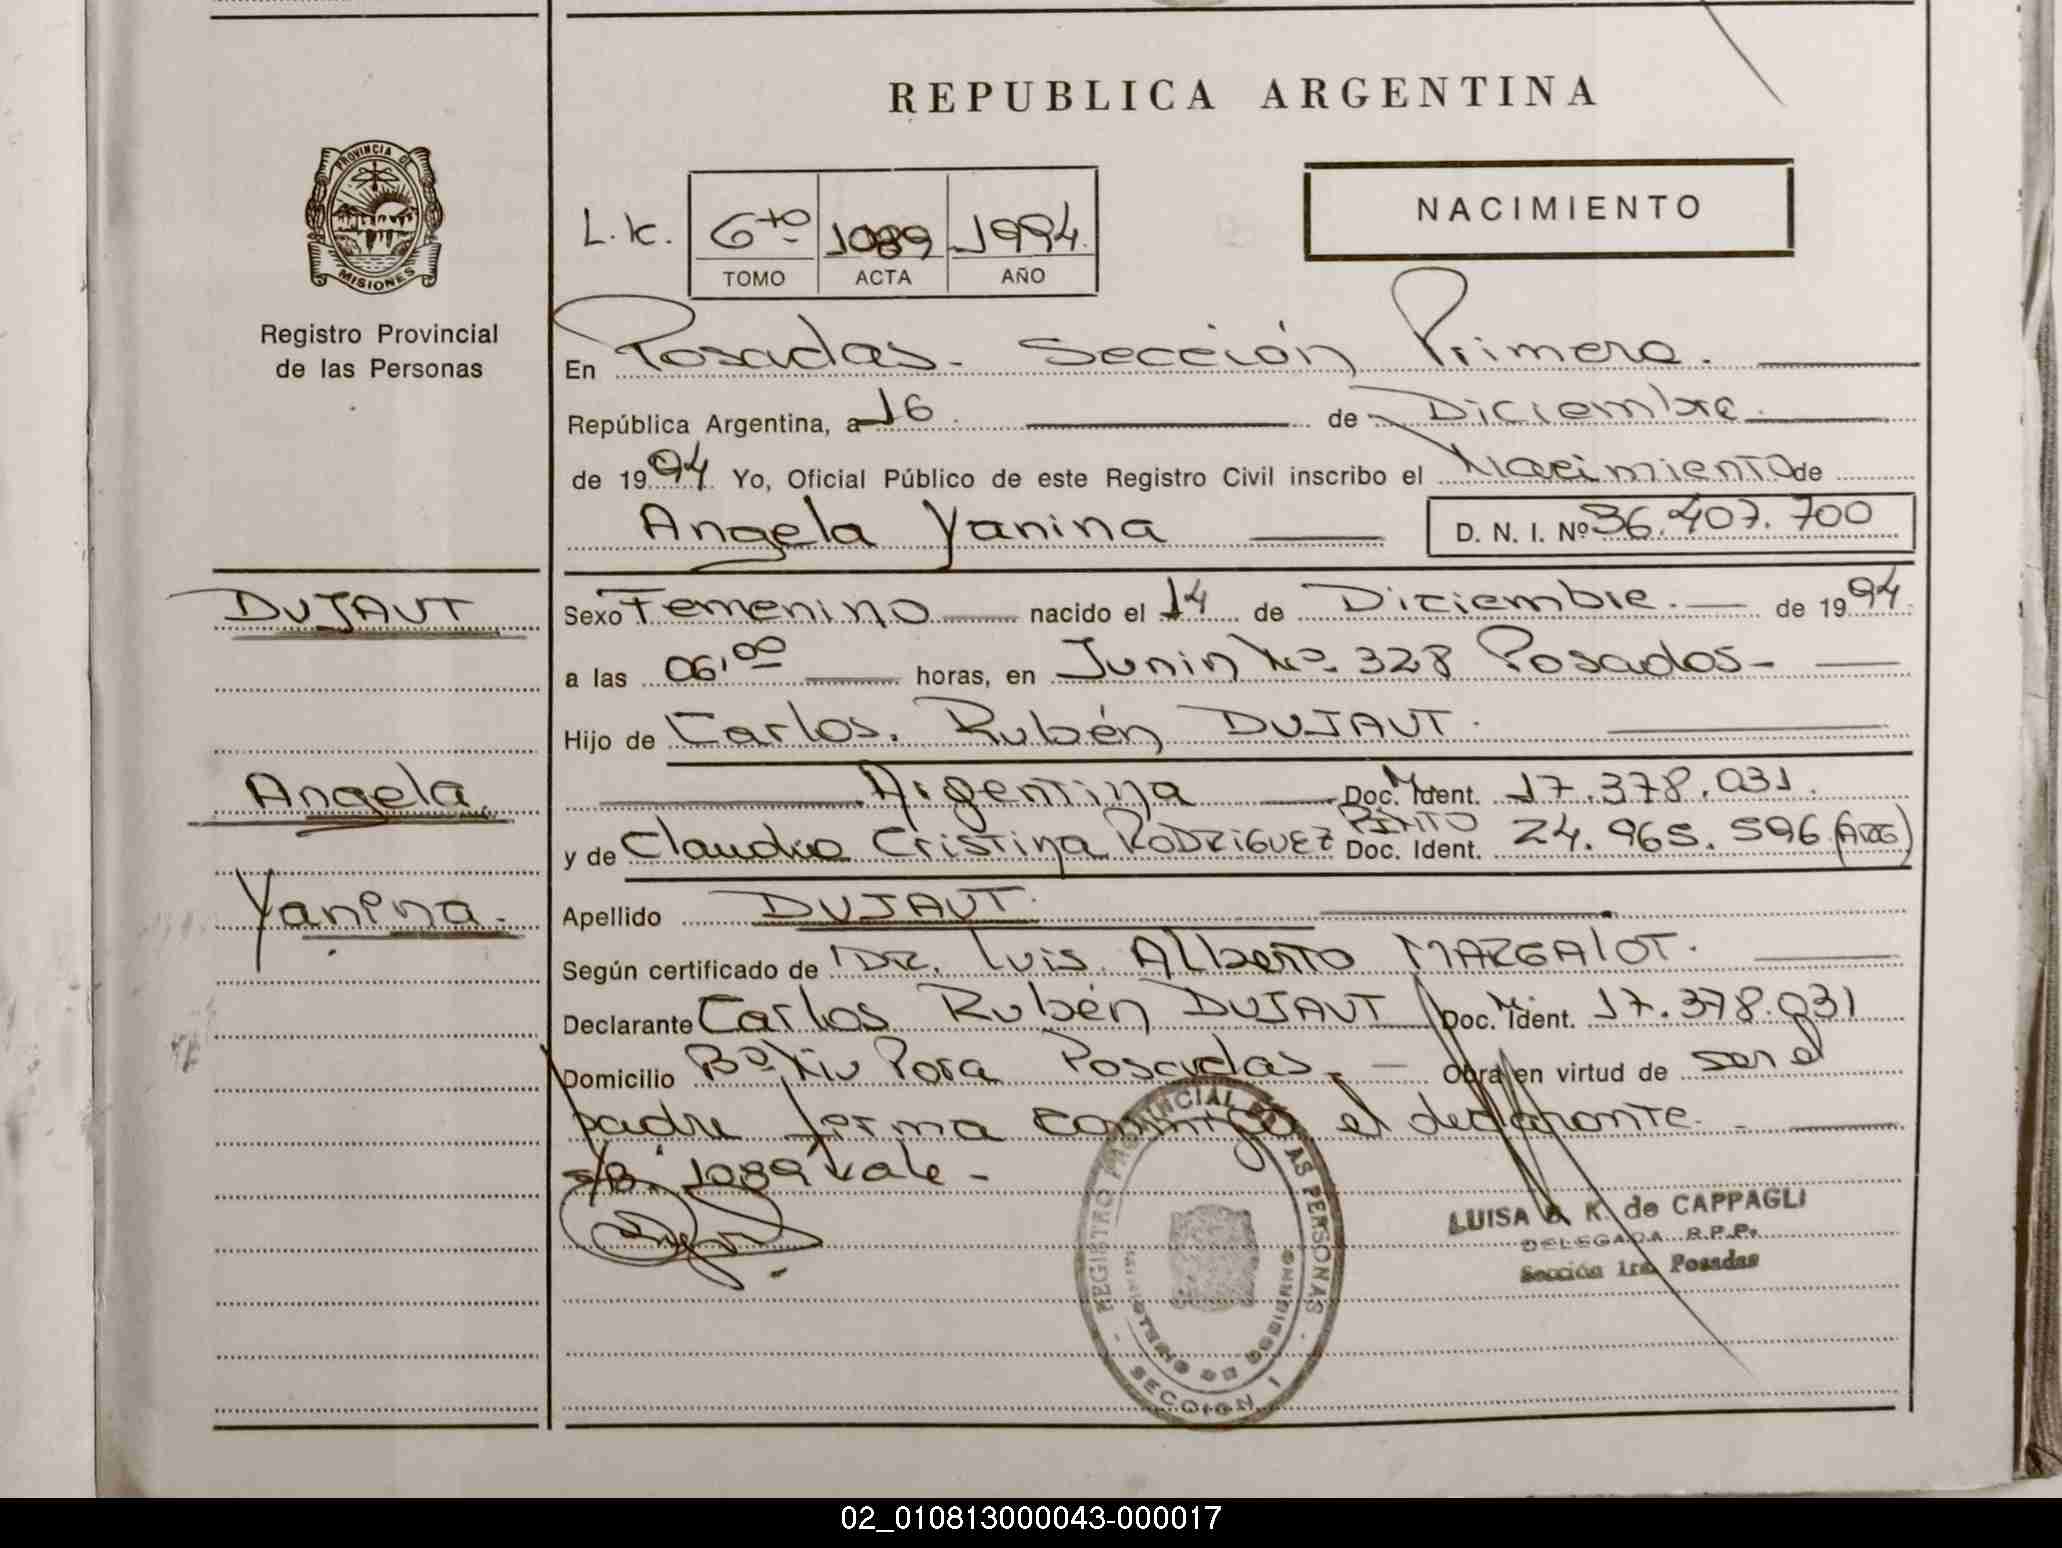 REPUBLICA ARGENTINA
PROVINCIA DE
MISIONES
Registro Provincial
de las Personas
NACIMIENTO
L.K. 6to 1089 1994.
TOMO ACTA AÑO
En Posadas - Sección Primera.
República Argentina, a 16 de Diciembre
de 1994 Yo, Oficial Público de este Registro Civil inscribo el Nacimiento de
Angela Yanina D. N. I. Nº 36.407.700
DUJAUT
Sexo Femenino nacido el 14 de Diciembre. de 1994
a las 06,00 horas, en Junin Nº 328 Posadas-
Hijo de Carlos. Rubén DUJAUT.
Angela
Argentina Doc. Ident. 17.378.031.
y de Claudia Cristina RODRIGUEZ PINTO Doc. Ident. 24.965.596 (ARG)
Yanina.
Apellido DUJAUT.
Según certificado de DR. Luis Alberto MARGALOT.
Declarante Carlos Rubén DUJAUT Doc. Ident. 17.378.031
Domicilio Bº Posadas - Obra en virtud de ser el
padre firma conmigo el declarante. -
s/B. 1089 Vale -
REGISTRO PROVINCIAL DE LAS PERSONAS
MINISTERIO DE GOBIERNO
SECCION 1
LUISA K. de CAPPAGLI
DELEGADA R.P.P.
Sección 1ra. Posadas
02_010813000043-000017